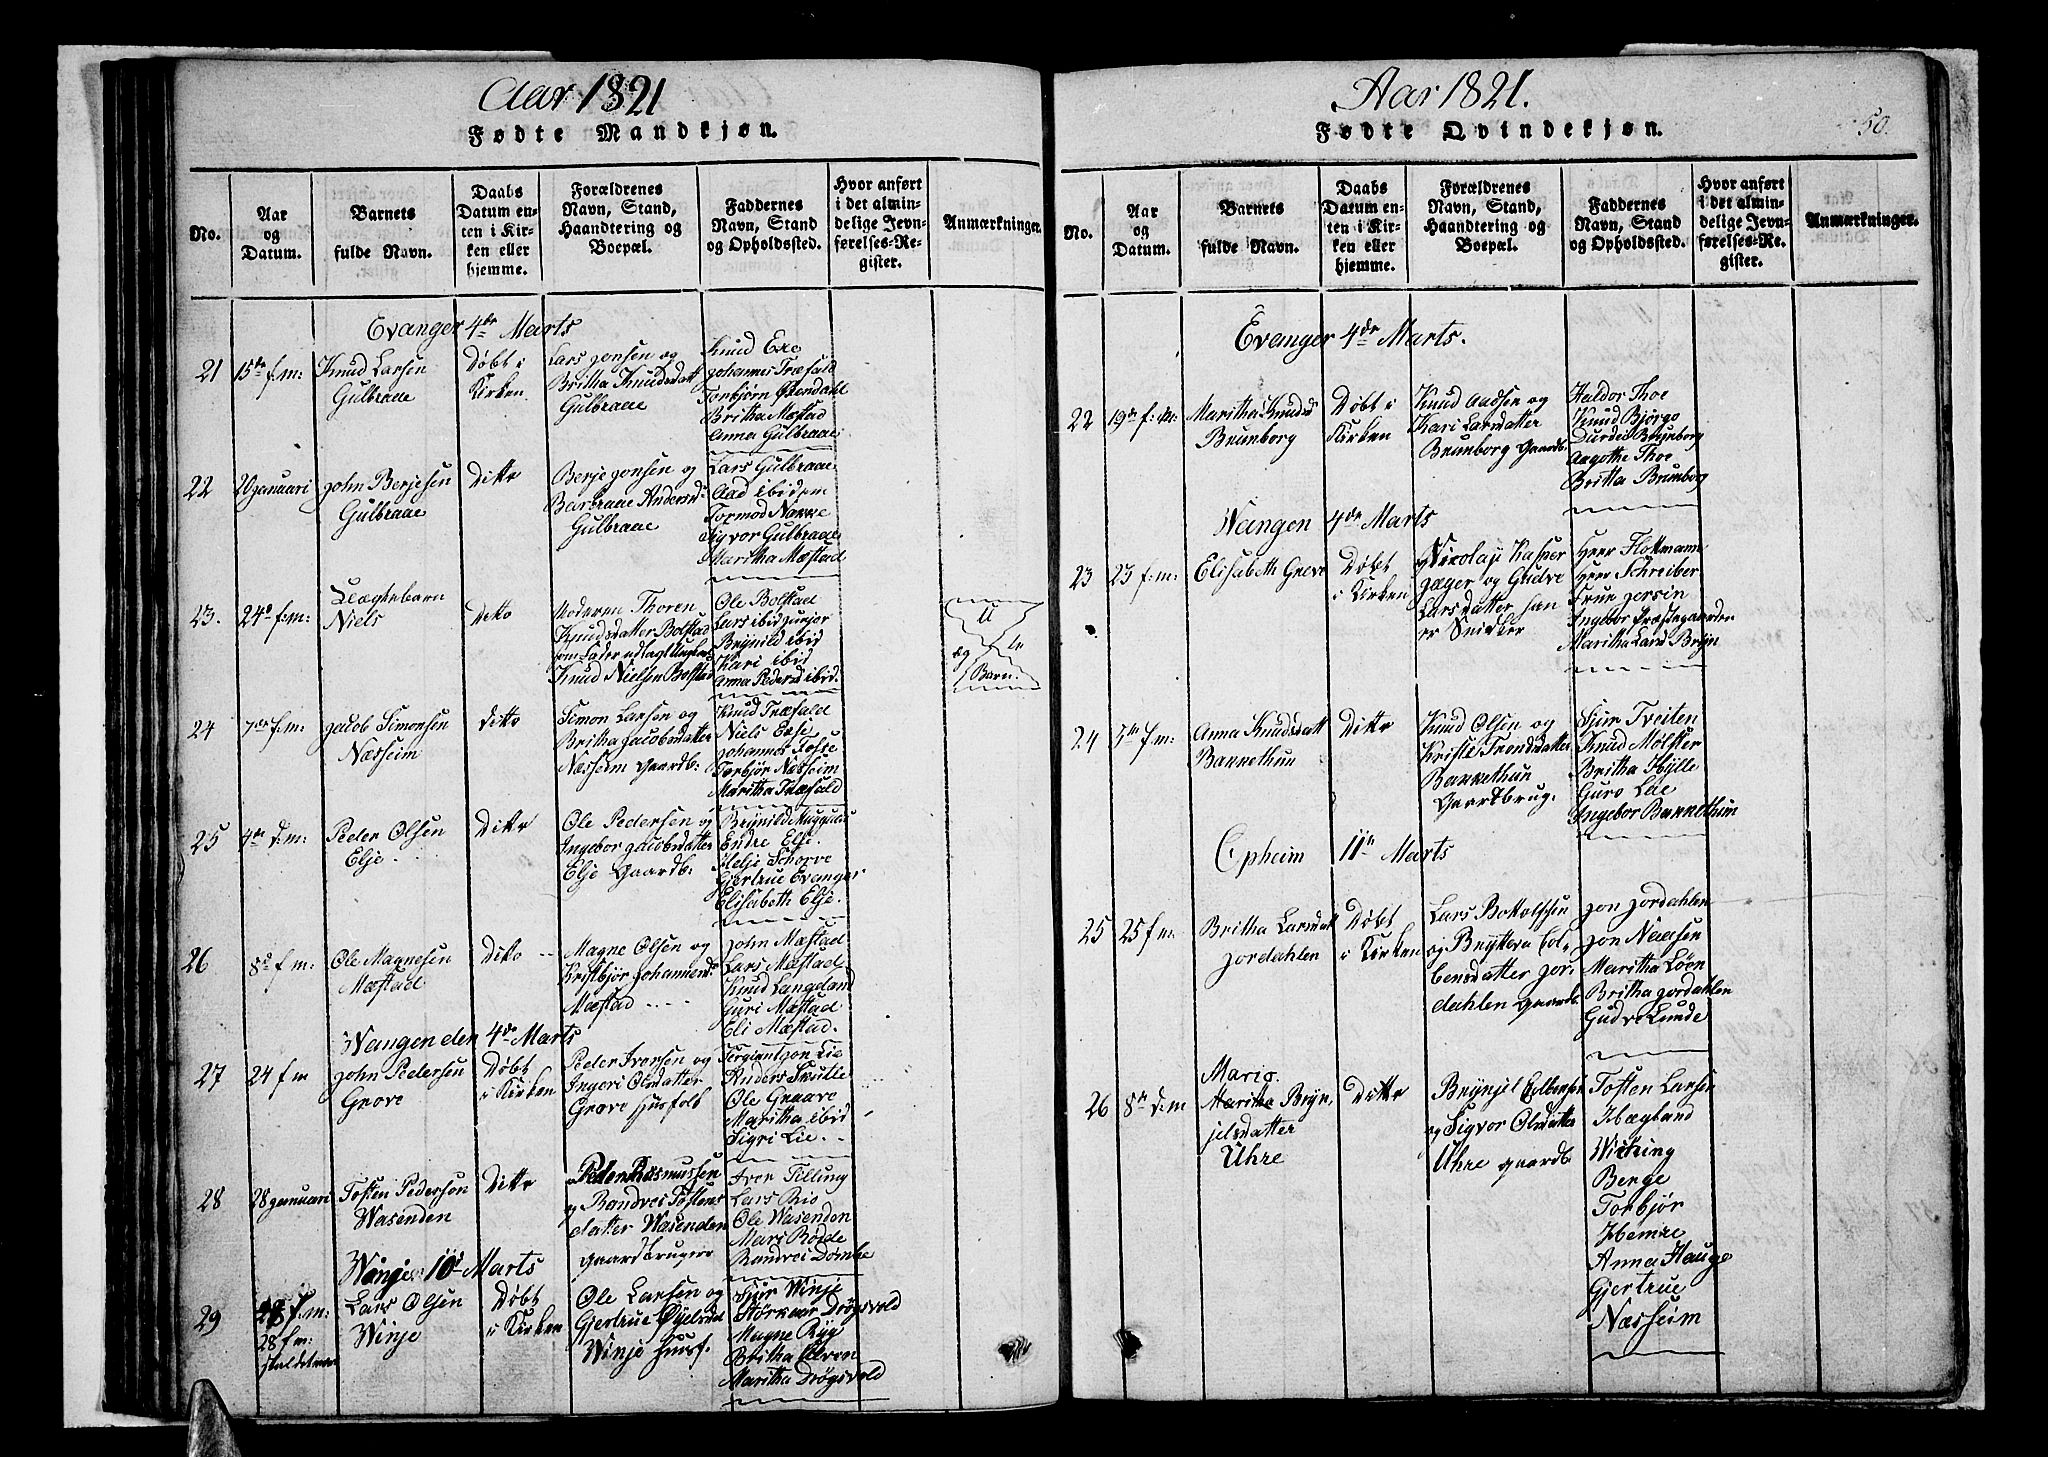 Aar 1821
Fødte Mandkjøn.
No.
Aar
og
Datum.
Barnets
fulde Navn.
Daabs
Datum en-
ten i Kir-
ken eller
hjemme.
Forældrenes
Navn, Stand,
Haandtering og
Boepæl.
Faddernes
Navn, Stand
og Opholdssted.
Hvor anført
i det almin-
delige Jevn-
førelses-Re-
gister.
Anmærkninger.
Evanger 4de Marts
21
15de f:m:
Knud Larsen
Gulbraae
Døbt i
Kirken
Lars Jonsen og
Britha Knudsdatt
Gulbraae
Knud Exe
Johannes Træfald
Torbjørn Øxendahl
Britha Mæstad
Anna Gulbraae
22
20 Januari
John Berjesen
Gulbraae
Ditto
Berje Jonsen og
Barbraae Andersd:
Gulbraae
Lars Gulbraae
Aad ibidem
Tormod Nække
Sigvor Gulbraae
Maritha Mæstad
23.
24d f:m:
Uægtebarn
Niels
Ditto
Moderen Thoren
Knudsdatter Bolstad
som Fader udlagt Ungkarl
Knud Nielsen Bolstad
Ole Bolstad
Lars ibid junjor
Brynild ibid
Kari ibid
Anna Pedersd ibid.
U
æg te
Barn.
24
7de f:m:
Jacob Simonsen
Næsseim
Ditto
Simon Larsen og
Britha Jacobsdatter
Næsseim Gaardb:
Knud Træfald
Niels Exse
Johannes Fosse
Torbjør Næsseim
Maritha Træfald
25
4de d:m:
Peder Olsen
Elje
Ditto
Ole Pedersen og
Ingebor Jacobsdatter
Elje Gaardb:
Brynild Muggaas
Endre Elje.
Helje Schorve
Gjertrue Evanger
Elisabeth Elje.
26
8d f m:
Ole Magnesen
Mæstad
Ditto
Magne Olsen og
Kristbjør Johannesd:
Mæstad
John Mæstad
Lars Mæstad
Knud Langeland
Guri Mæstad
Eli Mæstad.
Wangen den 4de Marts
27
24 f m
John Pedersen
Grove
Døbt
i Kirken
Peder Iversen og
Ingeri Olsdatter
Grove Husfolk
Torgier Lie
Anders Skutle
Ole Graave
Maritha ibid
Sigri Lie
28
28 Januari
Tosten Pedersen
Wasenden
Ditto
Peder Rasmussen
og Randvei Tostens
datter Wasenden
Gaardbrugere
Iver Tilling
Lars Rio
Ole Wasenden
Mars Rødde
Randvei Dømbe
Winje 10d Marts
29
28 f:m:
28 f m:
skal det være
Lars Olsen
Winje
Døbt
i Kirken
Ole Larsen og
Gjertrue Øyelsdat
Winje Husf.
Sjur Winje
Størkaar Drøgsvold
Magne Ryg
Britha Ulven
Maritha Drøgsvold
Aar 1821.
Fødte Qvindekjøn.
50.
No.
Aar
og
Datum.
Barnets
fulde Navn.
Daabs
Datum en-
ten i Kir-
ken eller
hjemme.
Forældrenes
Navn, Stand,
Haandtering og
Boepæl.
Faddernes
Navn, Stand
og Opholdssted.
Hvor anført
i det almin-
delige Jevn-
førelses-Re-
gister.
Anmærkninger.
Evanger 4de Marts.
22
19de f:m:
Maritha Knudsd
Brunborg
Døbt i
Kirken
Knud Aadsen og
Kari Larsdatter
Brunborg Gaardb.
Haldor Thoe
Knud Bjørgo
Durdei Brunborg
Aagothe Thoe
Britta Brunborg
Wangen 4de Marts
23
23 f:m:
Elisabeth Greve
Døbt
i Kirken
Nicolay
Jæger og Gudve
Larsdatter han
er Snidker
Herr Flottmann
Herr Schreiber
Frue Jersin
Ingebor Præstegaarden
Maritha Larsd Bryn
24
3de f m:
Anna Knudsdatt
Bakkethun
Ditto
Knud Olsen og
Kristi Trondsdatter
Bakkethun
Gaardbrug.
Sjur Tveiten
Knud Mølster
Britha Hylle
Guro Lie
Ingebor Bakkethun
Opheim 11te Marts
25
25 f m:
Britha Larsdat
Jordahlen
Døbt
i Kirken
Lars Bottolfsen
og Bryttera Col-
bensdatter Jor-
dahlen Gaardb.
Jon Jordahlen
Jon Neaesen
Maritha Løøn
Britha Jordahlen
Gudve Lunde
26
8de d:m
Mario.
Maritha Bryn
jelsdatter
Uhre
Ditto
Brynjel Colbensen
og Sigvor Olsdatter
Uhre Gaardb
Tosten Larsen
Hægland
Wicking
Berge
Torbjør
Hemre
Anna Hauge
Gjertrue
Næsseim